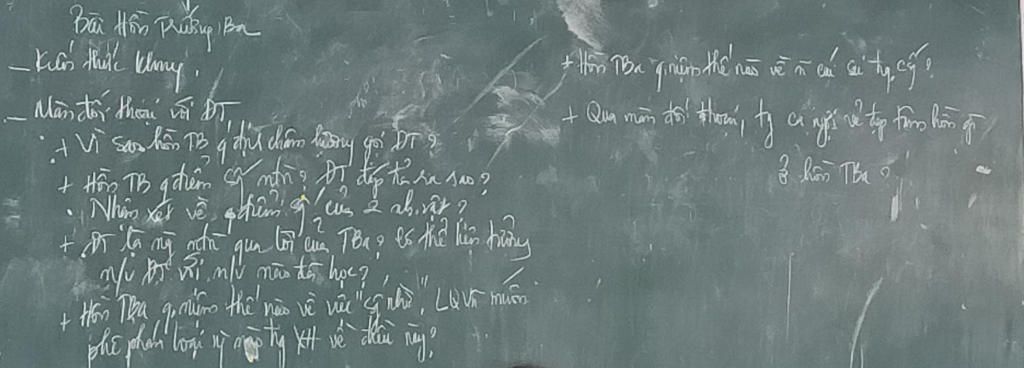 Bài Hồn Trương Ba
_ Kiến thức chung.
_ Màn đối thoại với ĐT
+ Vì sao hồn TB q định châm hương gọi ĐT?
+ Hồn TB q điểm sống ntn? ĐT đáp từ ra sao?
Nhận xét về q điểm sống của 2 nh. vật?
+ ĐT là ng ntn qua lời của TBa? Có thể liên tưởng
n/v ĐT với n/v nào đã học?
+ Hồn TBa q. niệm thế nào về việc "sống nhờ", LQVũ muốn
phê phán loại ng nào tg XH về điều này?
+ Hồn TBa q. niệm thế nào về n cái sai tg c/s?
+ Qua màn đối thoại, tg ca ngợi vẻ đẹp tâm hồn gì
ở hồn TBa?